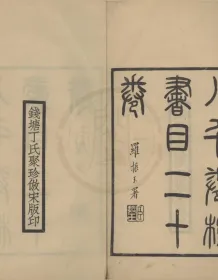 八千卷樓
書目二十
卷
羅振玉署
錢塘丁氏聚珍倣宋版印